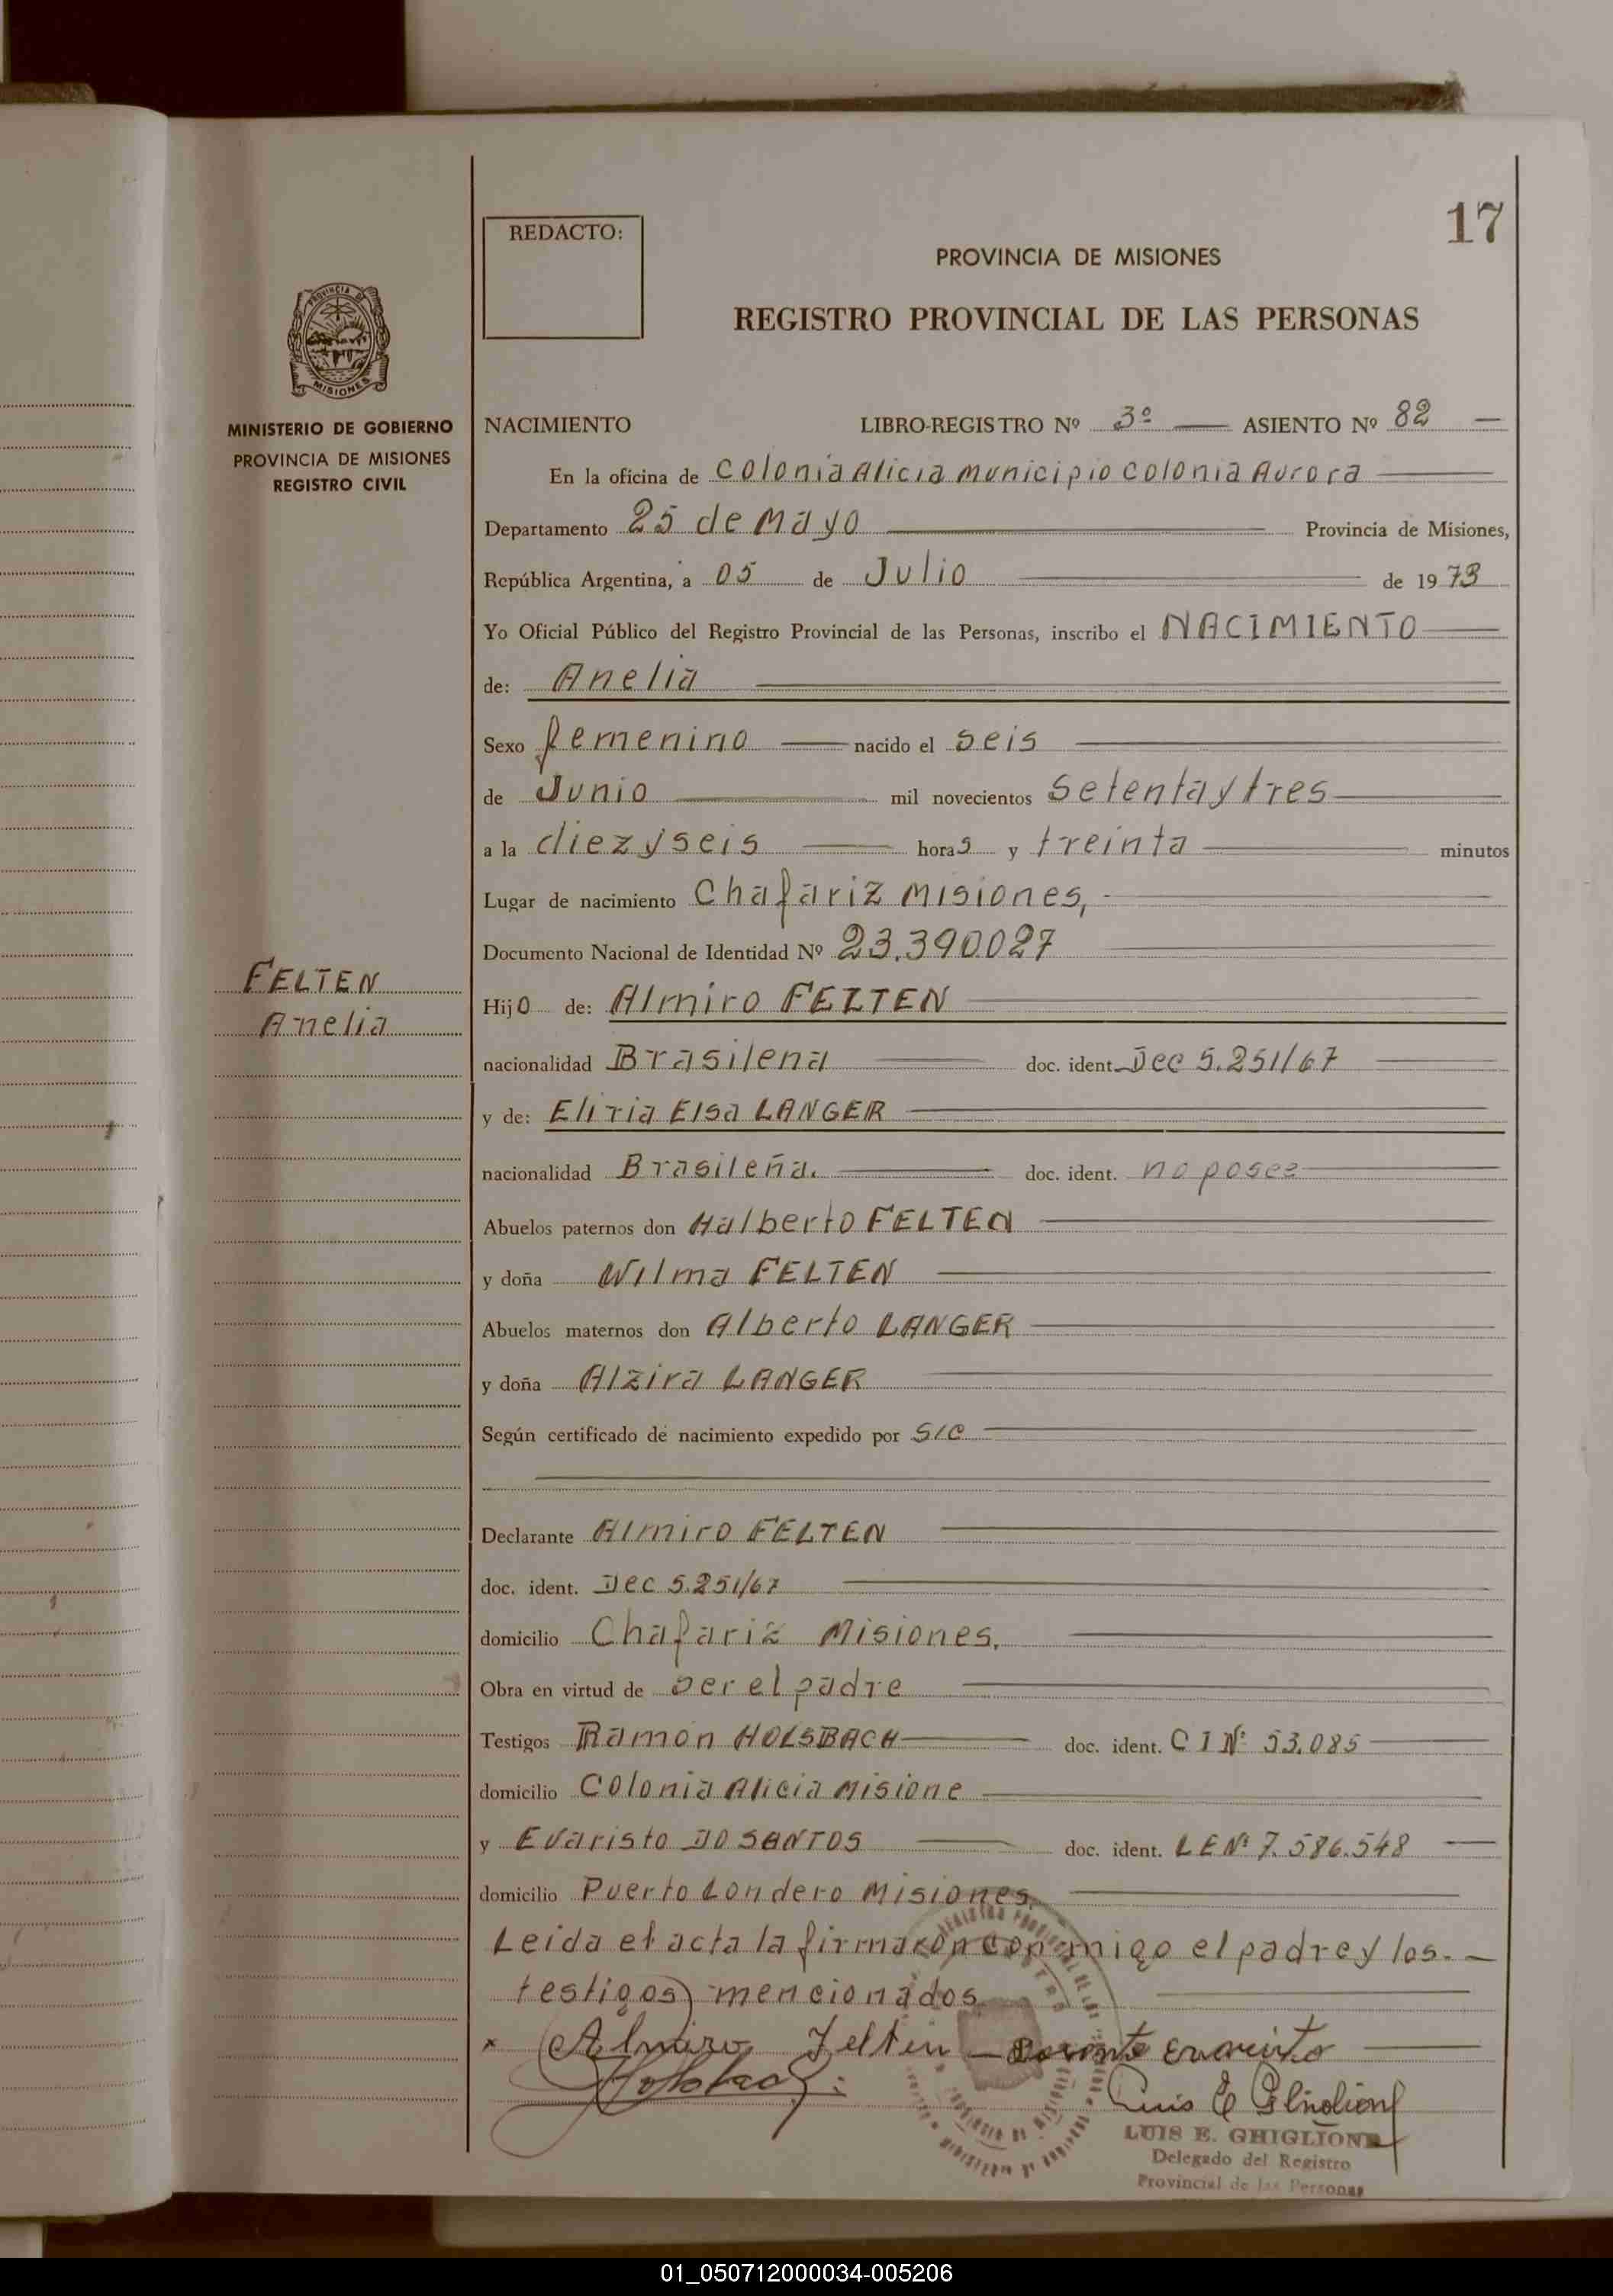 17
REDACTO:
PROVINCIA DE MISIONES
REGISTRO PROVINCIAL DE LAS PERSONAS
PROVINCIA DE
MISIONES
MINISTERIO DE GOBIERNO
PROVINCIA DE MISIONES
REGISTRO CIVIL
NACIMIENTO LIBRO-REGISTRO Nº 3º ASIENTO Nº 82
En la oficina de Colonia Alicia Municipio Colonia Aurora
Departamento 25 de Mayo Provincia de Misiones,
República Argentina, a 05 de Julio de 1973
Yo Oficial Público del Registro Provincial de las Personas, inscribo el NACIMIENTO
de: Anelia
Sexo femenino nacido el seis
de Junio mil novecientos setenta y tres
a la diez y seis horas y treinta minutos
Lugar de nacimiento Chafariz Misiones,
Documento Nacional de Identidad Nº 23.390.027
FELTEN
Anelia
Hijo de: Almiro FELTEN
nacionalidad Brasilena doc. ident. Dec 5.251/67
y de: Eliria Elsa LANGER
nacionalidad Brasileña. doc. ident. no posee
Abuelos paternos don Halberto FELTEN
y doña Wilma FELTEN
Abuelos maternos don Alberto LANGER
y doña Alzira LANGER
Según certificado de nacimiento expedido por S/C
Declarante Almiro FELTEN
doc. ident. Dec 5.251/67
domicilio Chafariz Misiones.
Obra en virtud de ser el padre
Testigos Ramón HOLSBACH doc. ident. C I Nº 53.085
domicilio Colonia Alicia Misione
y Evaristo DO SANTOS doc. ident. L E Nº 7.586.548
domicilio Puerto Londero Misiones.
Leida el acta la firmaron con migo el padre y los
testigos mencionados.
x Almiro Felten
Luis E Ghiglione
LUIS E. GHIGLIONE
Delegado del Registro
Provincial de las Personas
01_050712000034-005206